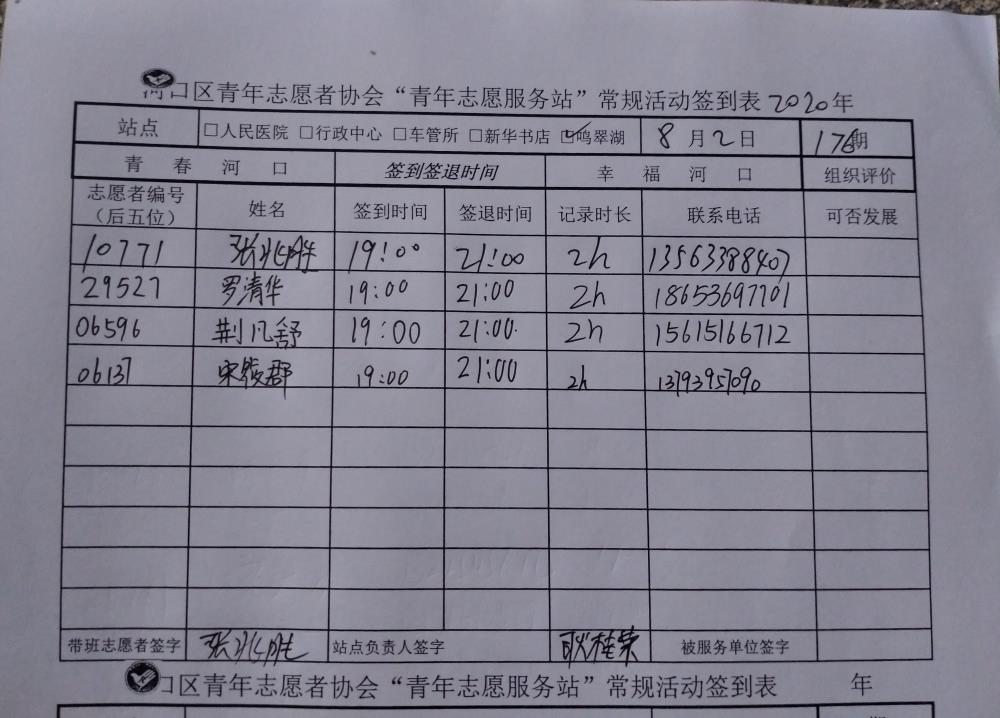 河口区青年志愿者协会“青年志愿服务站”常规活动签到表 2020年
站点 □人民医院 □行政中心 □车管所 □新华书店 ☑鸣翠湖 8月2日 176期
青春河口 签到签退时间 幸福河口 组织评价
志愿者编号（后五位） 姓名 签到时间 签退时间 记录时长 联系电话 可否发展
10771 张兆胜 19:00 21:00 2h 13563388407
29527 罗清华 19:00 21:00 2h 18653697701
06596 荆凡舒 19:00 21:00 2h 15615166712
06137 宋绫郡 19:00 21:00 2h 13793957090
带班志愿者签字 张兆胜 站点负责人签字 耿桂荣 被服务单位签字
口区青年志愿者协会“青年志愿服务站”常规活动签到表 年